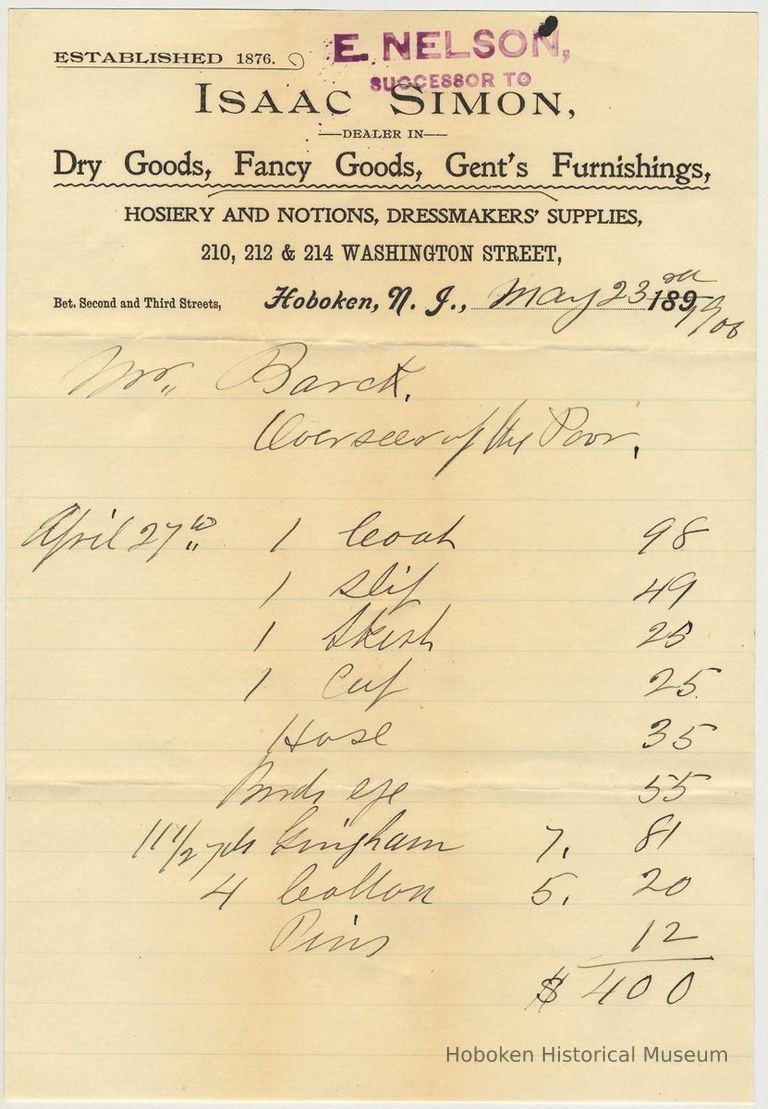 E. NELSON,
SUCCESSOR TO
ESTABLISHED 1876.
ISAAC SIMON,
DEALER IN
Dry Goods, Fancy Goods, Gent's Furnishings,
HOSIERY AND NOTIONS, DRESSMAKERS' SUPPLIES,
210, 212 & 214 WASHINGTON STREET,
Bet. Second and Third Streets, Hoboken, N. J., May 23rd 189
Mr. Barck,
Overseer of the Poor,
April 27th 1 Coat 98
1 Slip 49
1 Skirt 25
1 Cap 25
Hose 35
Birds eye 55
11 1/2 yds Gingham 7. 81
4 Cotton 5. 20
Pins 12
$ 4 00
Hoboken Historical Museum